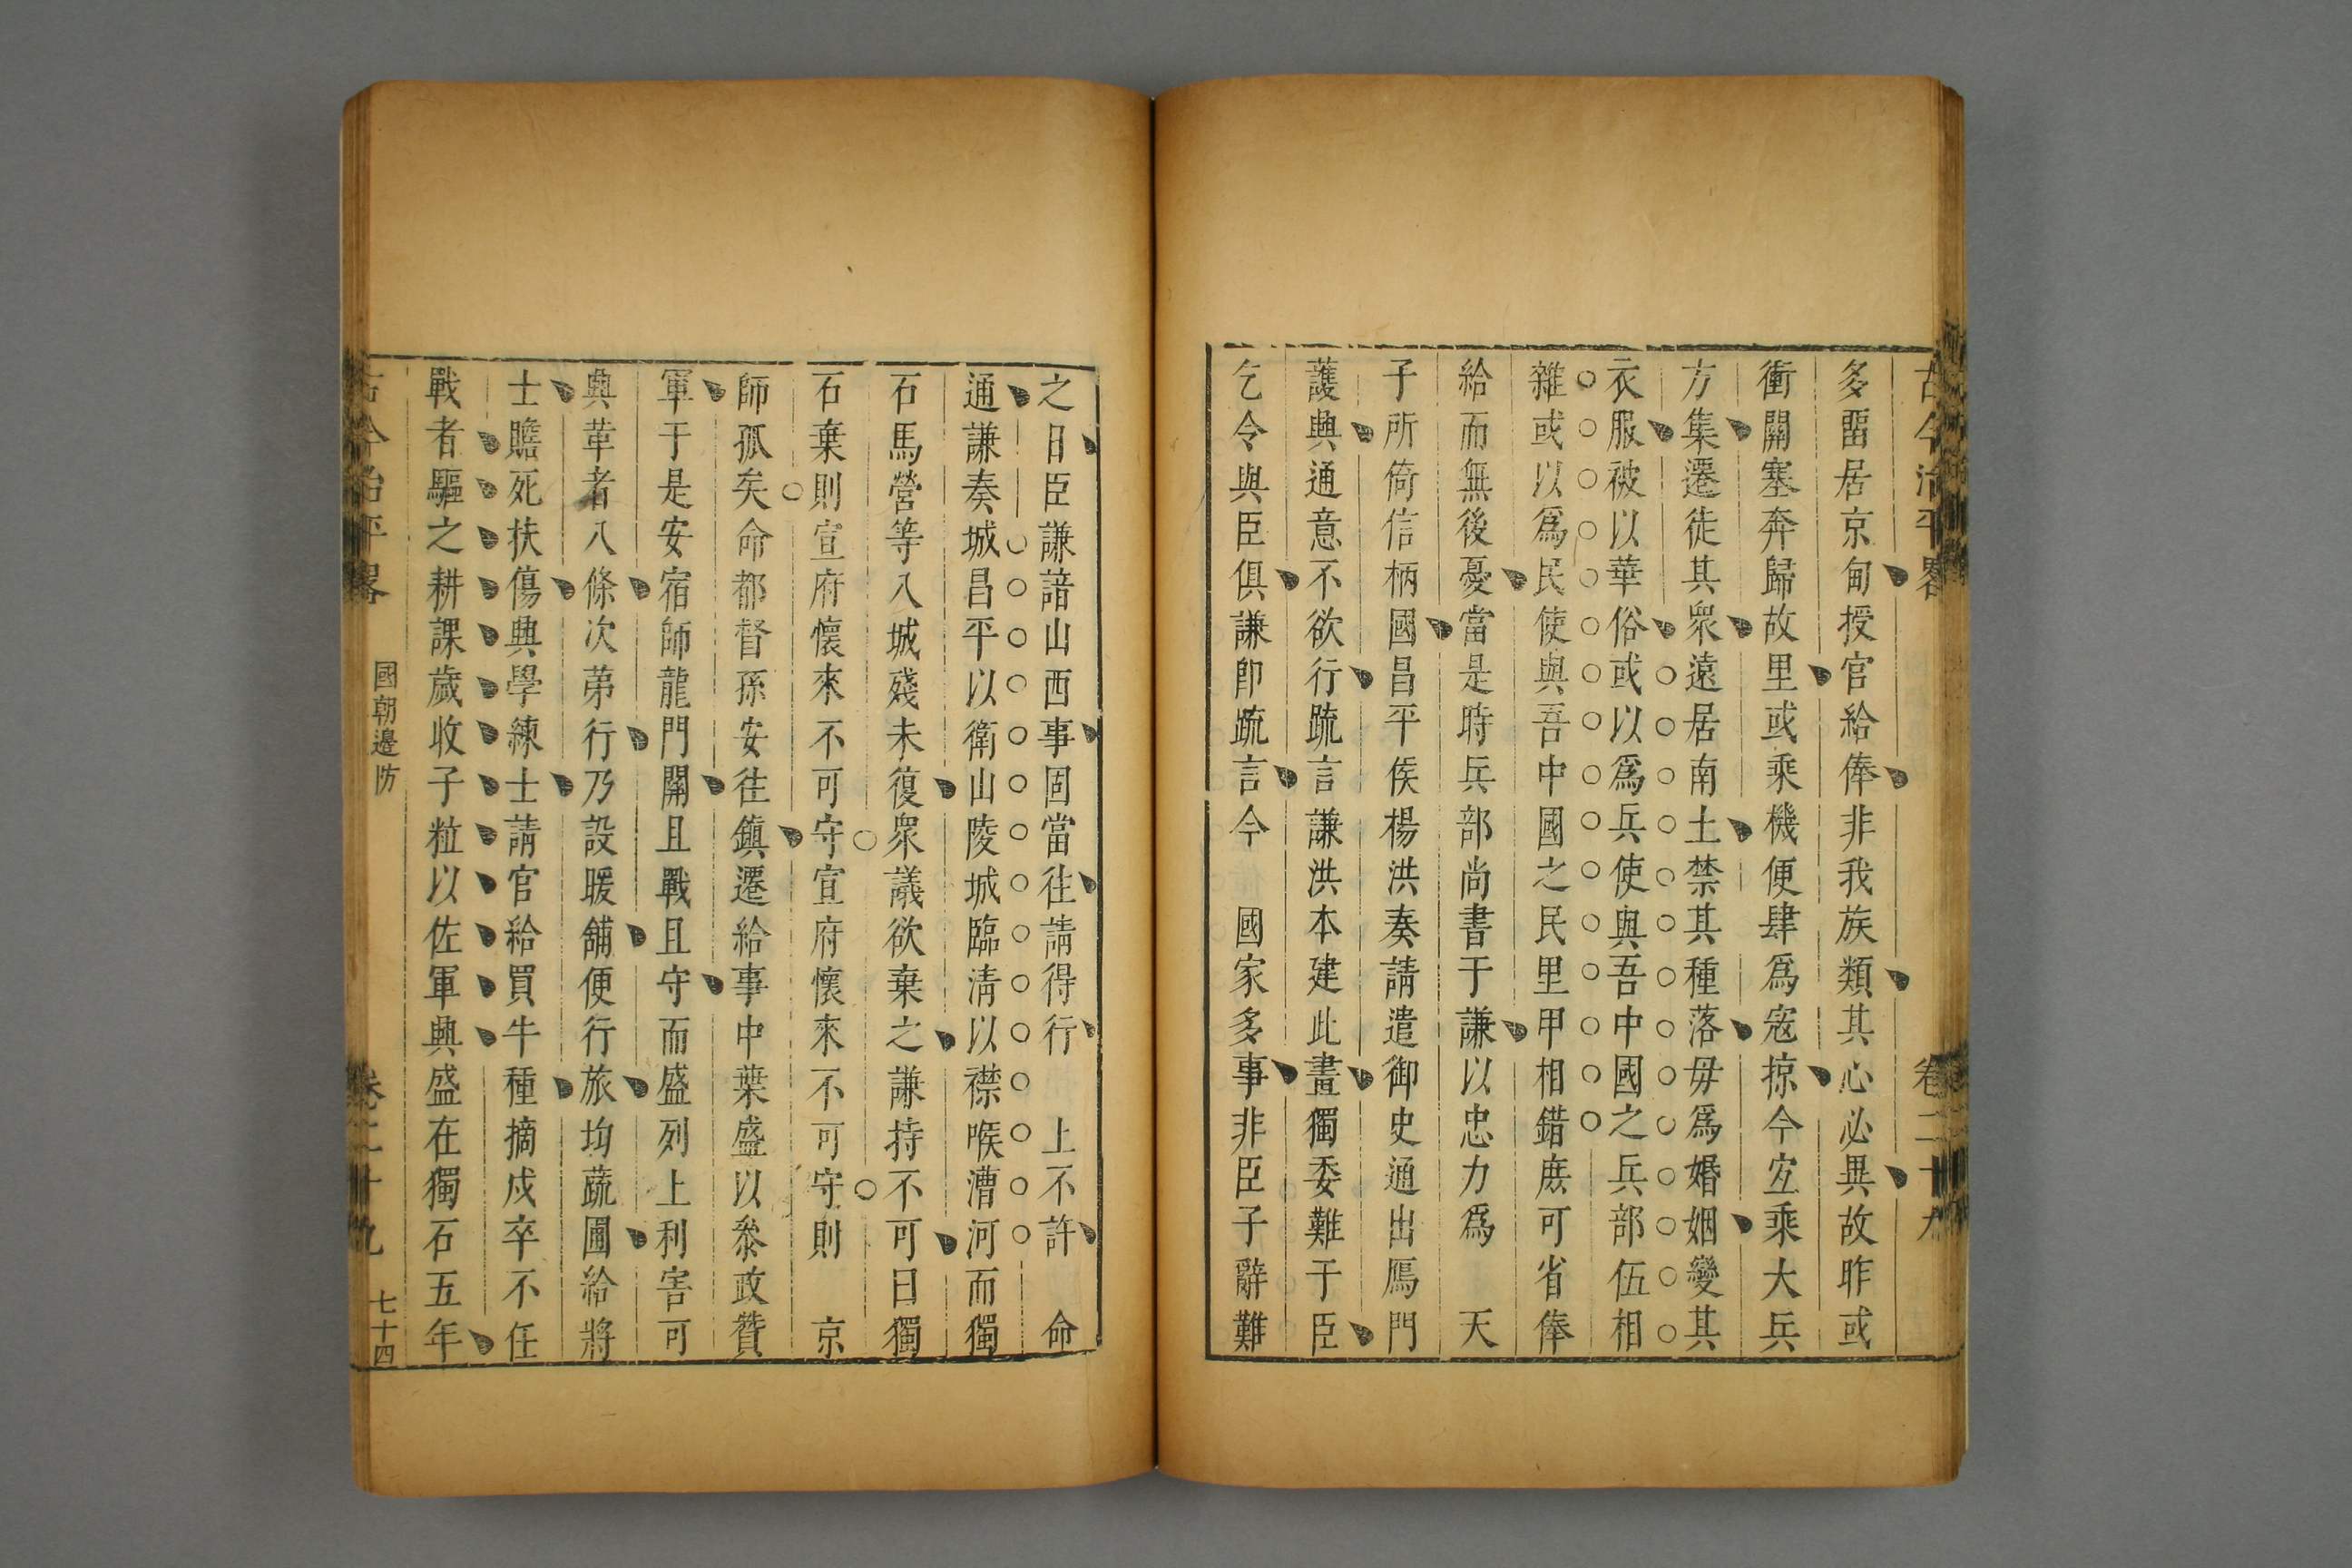 古今治平畧 卷二十九
多畱居京甸授官給俸非我族類其心必異故昨或
衝關塞奔歸故里或乘機便肆爲寇掠今宐乘大兵
方集遷徒其衆遠居南土禁其種落毋爲婚姻變其
衣服被以華俗或以爲兵使與吾中國之兵部伍相
雜或以爲民使與吾中國之民里甲相錯庻可省俸
給而無後憂當是時兵部尚書于謙以忠力爲 天
子所倚信柄國昌平侯楊洪奏請遣御史通出鴈門
護輿通意不欲行䟽言謙洪本建此畫獨委難于臣
乞令與臣俱謙卽䟽言今 國家多事非臣子辭難
之日臣謙諳山西事固當往請得行 上不許 命
通謙奏城昌平以衛山陵城臨清以襟喉漕河而獨
石馬營等八城殘未復衆議欲棄之謙持不可曰獨
石棄則宣府懷來不可守宣府懷來不可守則 京
師孤矣命都督孫安往鎮遷給事中葉盛以叅政贊
軍于是安宿師龍門關且戰且守而盛列上利害可
興革者八條次第行乃設暖舖便行旅均蔬圃給將
士贍死扶傷興學練士請官給買牛種摘戍卒不任
戰者驅之耕課歲收子粒以佐軍興盛在獨石五年
古今治平畧 國朝邊防 卷二十九 七十四